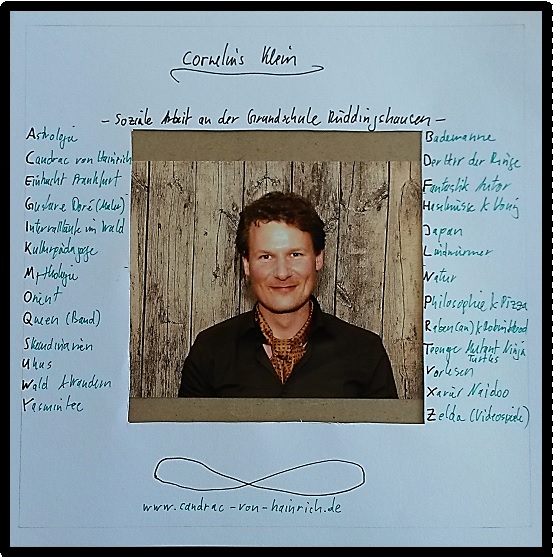 Cornelius Klein
- Soziale Arbeit an der Grundschule Rüddingshausen -
Astrologie
Candrac von Hainrich
Eintracht Frankfurt
Gustave Doré (Maler)
Intervalltank im Wald
Kulturpädagoge
Mythologie
Orient
Queen (Band)
Skandinavien
Uhus
Wald & Wandern
Yasmintee
Badewanne
Der Herr der Ringe
Fantastik Autor
Haselnüsse & Honig
Japan
Lindwürmer
Natur
Philosophie & Pizza
Raben(an) & Robin Hood
Teenage Mutant Ninja
Turtles
Vorlesen
Xavier Naidoo
Zelda (Videospiele)
www.candrac-von-hainrich.de